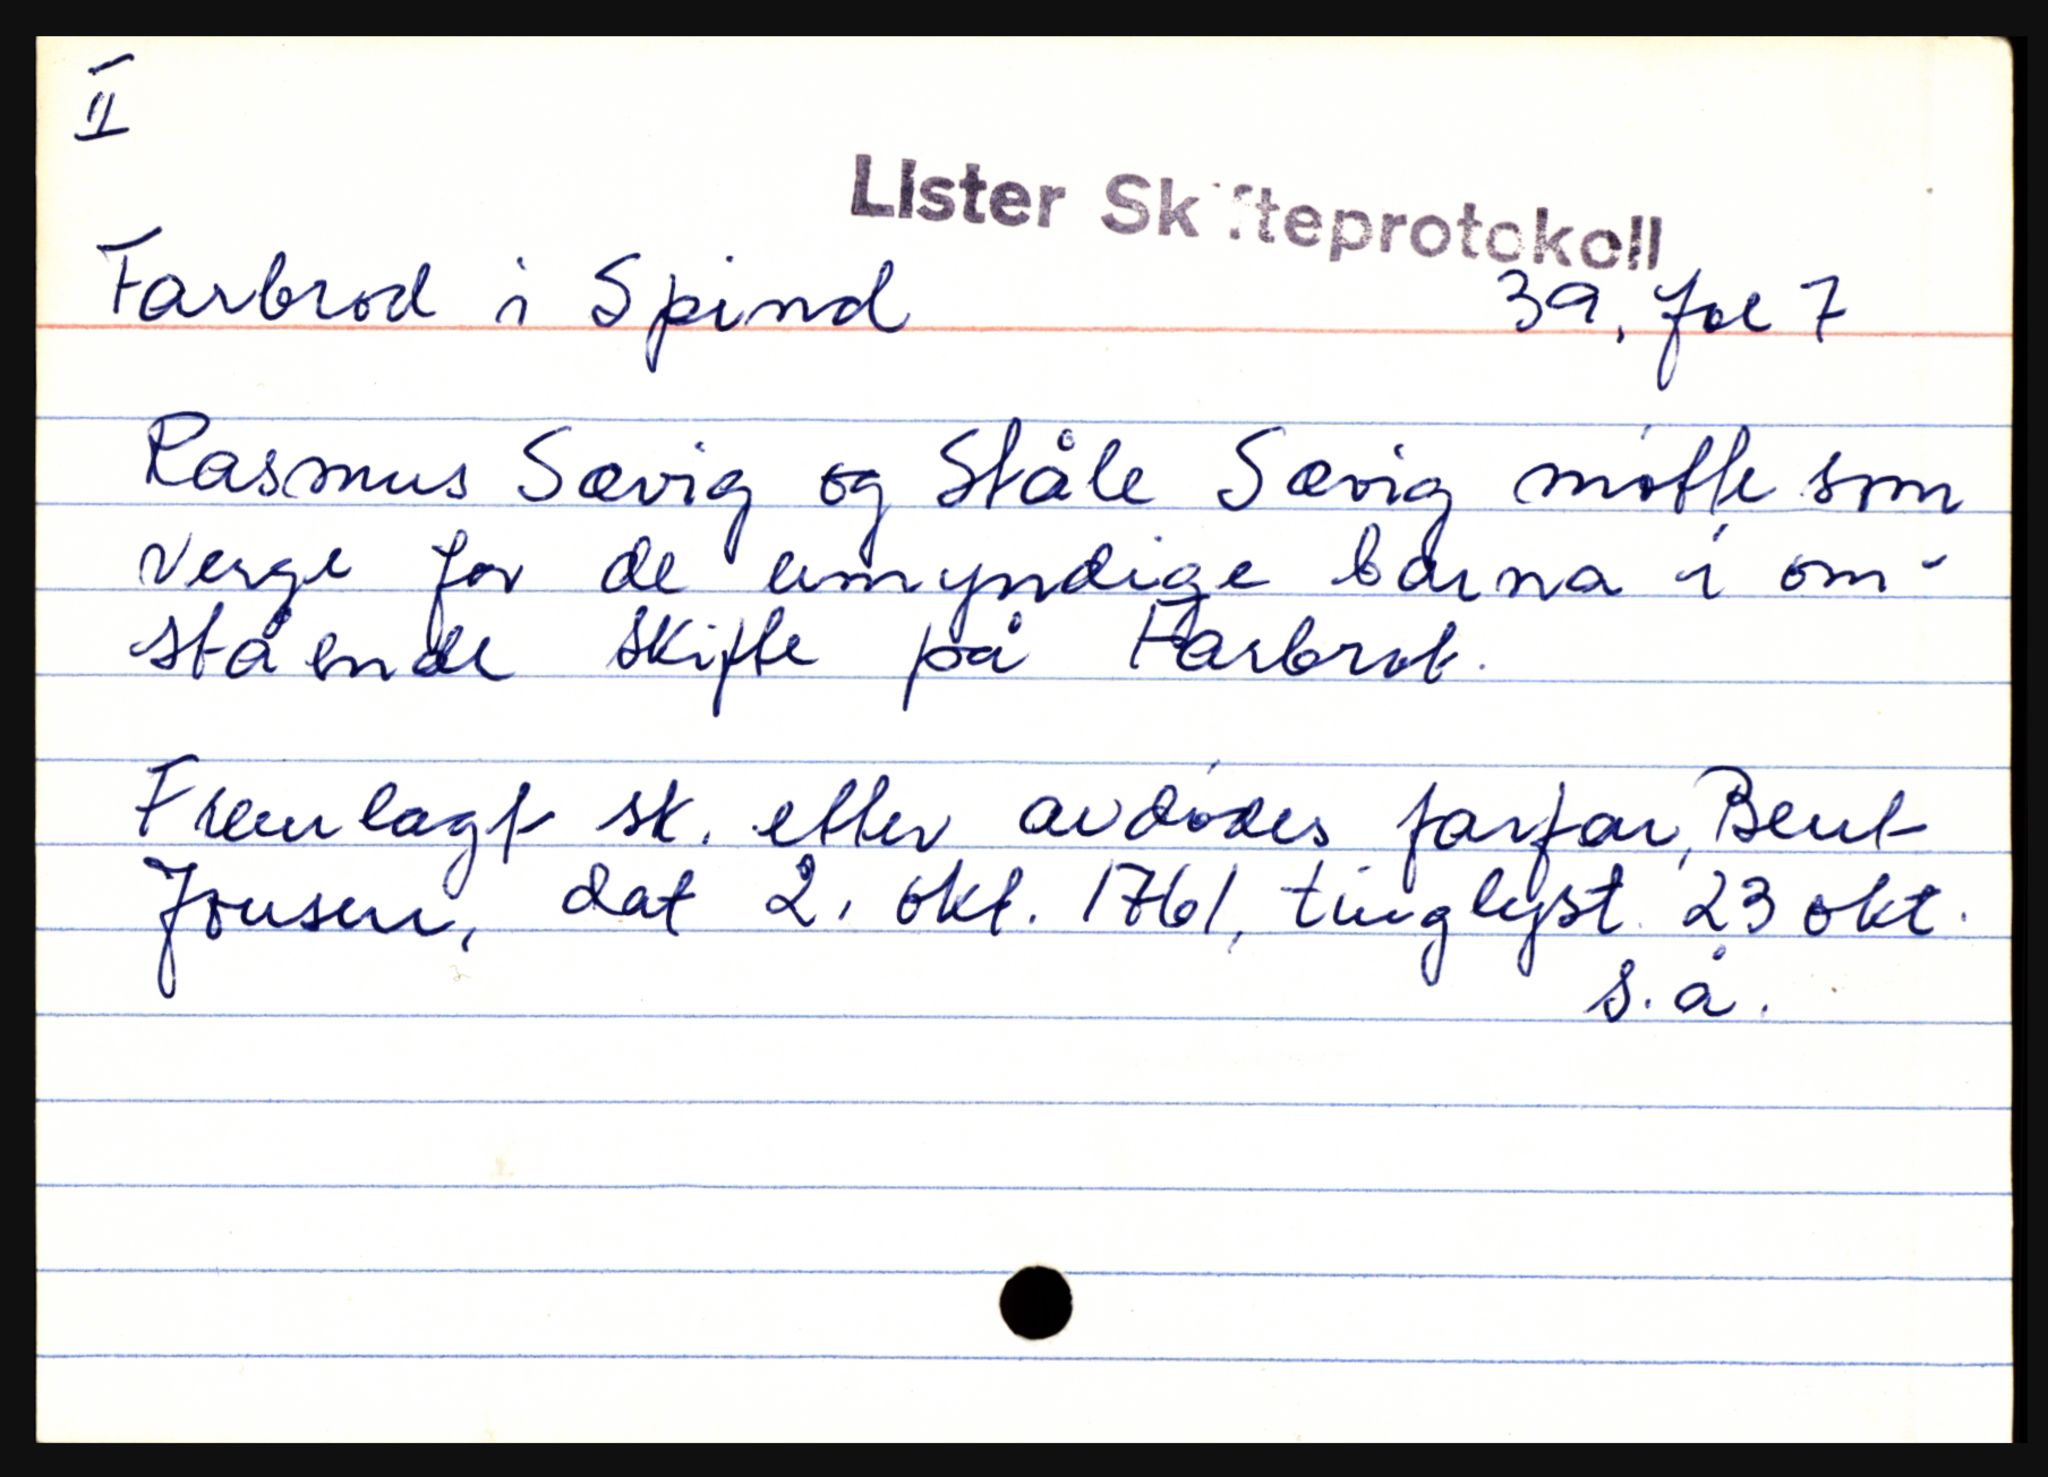 II
Lister Skifteprotokoll
Farbrod i Spind 39, fol 7
Rasmus Sævig og Ståle Sævig møtte som
verge for de umyndige barna i om-
stående skifte på Farbrot.
Fremlagt sk. etter avdødes farfar, Bent
Jonsen, dat 2. okt. 1761, tinglyst 23 okt.
s.å.